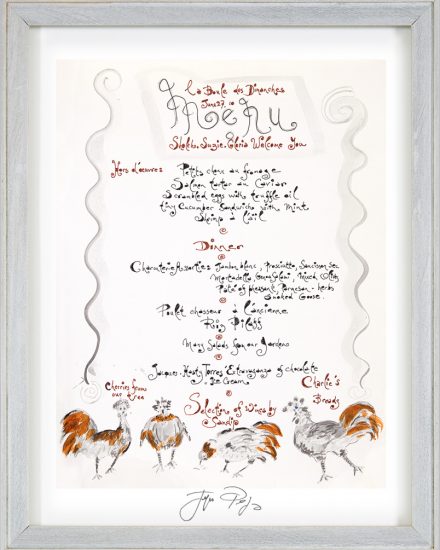 La Boule des Dimanches
June 27, 10
Menu
Shorty, Suzie, Gloria Welcome You
Hors d'oeuvres
Petits choux au fromage
Salmon tartar au Caviar
Scrambled eggs with truffle oil
tiny Cucumber Sandwichs with Mint
Shrimp à l'ail
Dinner
Charcuterie Assorties Jambon blanc, Prosciutto, Saucisson sec
Mortadella, Genoa Salami Mixed Olives
Pâté of pheasant, Parmesan - herbs
Smoked Goose.
Poulet chasseur à l'ancienne
Riz Pilaff
Many Salads from our Gardens
Jacques - Hasty Torres' Extravaganza of chocolate
Ice Cream
Cherries from
our tree
Charlie's
Breads
Selection of Wines by